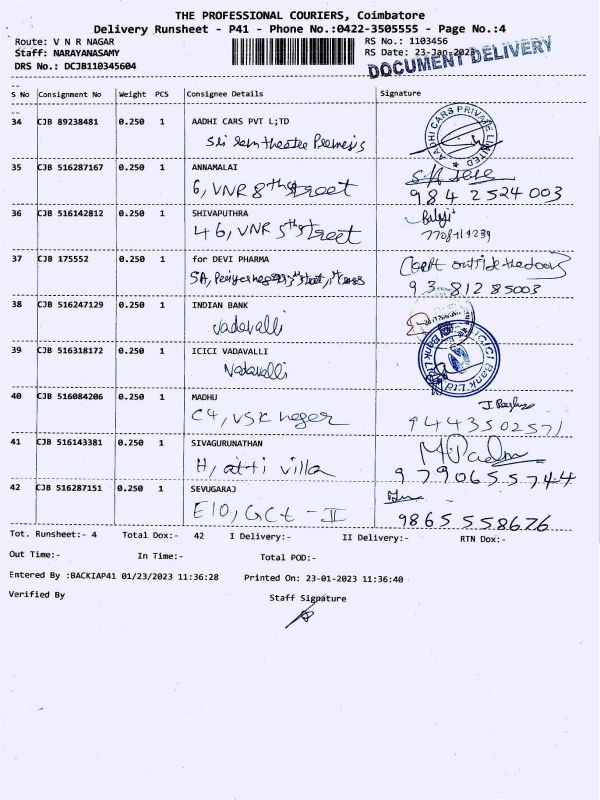 THE PROFESSIONAL COURIERS, Coimbatore
Delivery Runsheet - P41 - Phone No.:0422-3505555 - Page No.:4
Route: V N R NAGAR
RS No.: 1103456
Staff: NARAYANASAMY
RS Date: 23-Jan-2023
DRS No.: DCJB110345604
DOCUMENT DELIVERY
S No Consignment No Weight PCS Consignee Details Signature
34 CJB 89238481 0.250 1 AADHI CARS PVT L;TD
AADHI CARS PRIVATE LIMITED
35 CJB 516287167 0.250 1 ANNAMALAI
6, VNR 8th street
984 2524 003
36 CJB 516142812 0.250 1 SHIVAPUTHRA
46, VNR 5th street
37 CJB 175552 0.250 1 for DEVI PHARMA
93 81285003
38 CJB 516247129 0.250 1 INDIAN BANK
Vadavalli
39 CJB 516318172 0.250 1 ICICI VADAVALLI
ICICI Bank Ltd
Vadavalli
40 CJB 516084206 0.250 1 MADHU
C4, VSK
9443502571
41 CJB 516143381 0.250 1 SIVAGURUNATHAN
H, atti villa
9790655744
42 CJB 516287151 0.250 1 SEVUGARAJ
E10, GCT - II
9865558676
Tot. Runsheet:- 4 Total Dox:- 42 I Delivery:- II Delivery:- RTN Dox:-
Out Time:- In Time:- Total POD:-
Entered By :BACKIAP41 01/23/2023 11:36:28 Printed On: 23-01-2023 11:36:40
Verified By Staff Signature